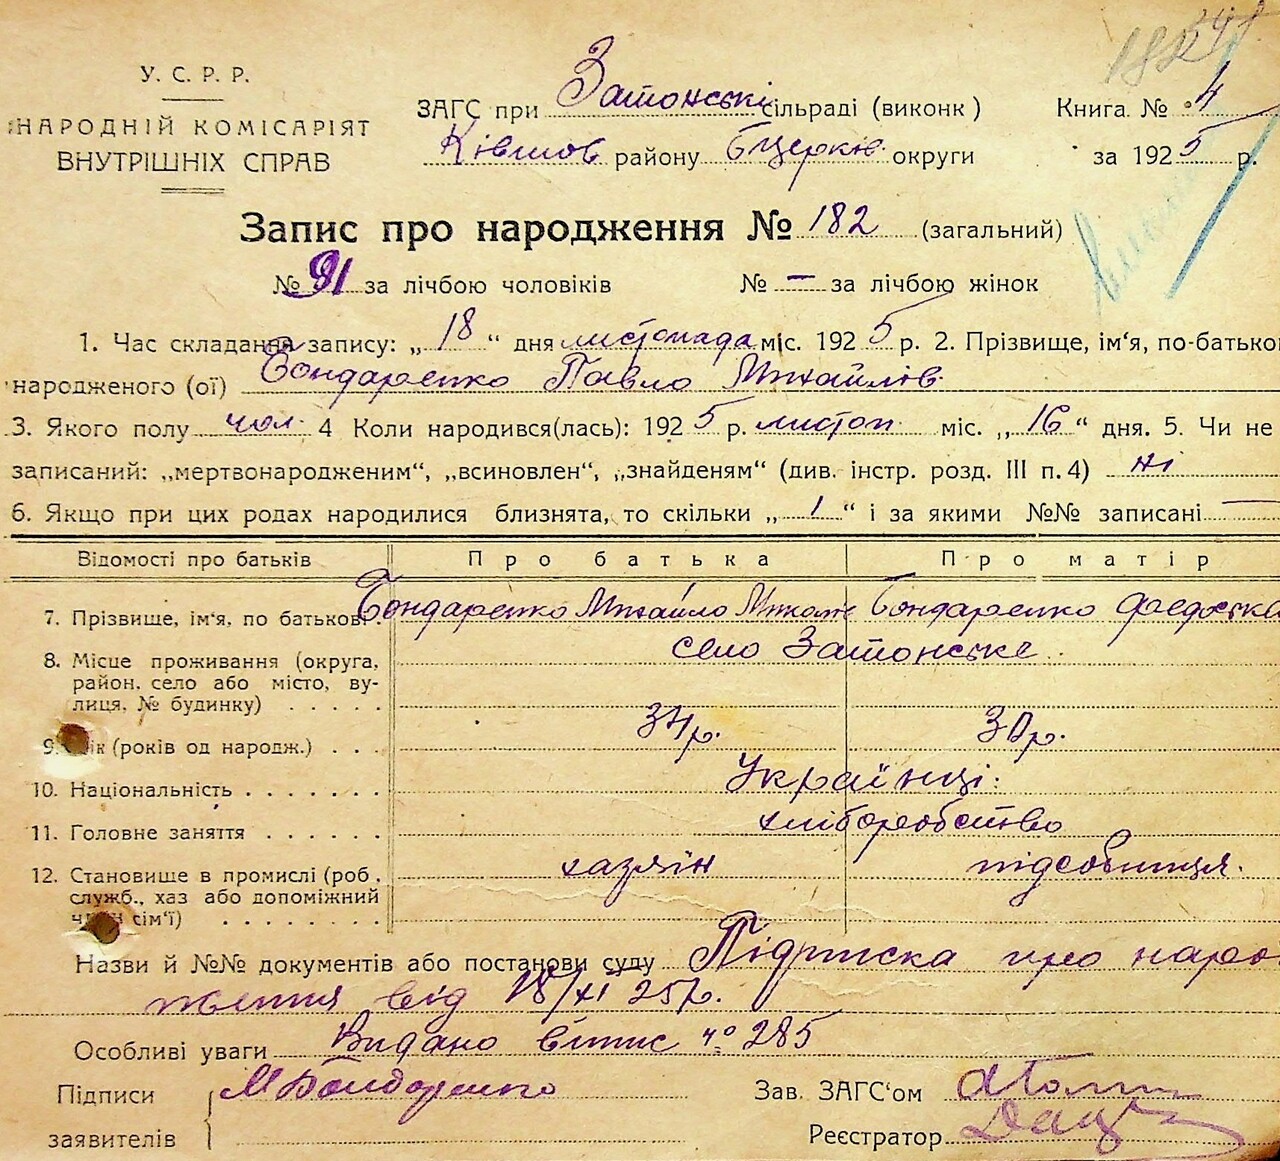 У. С. Р. Р.
НАРОДНІЙ КОМІСАРІЯТ
ВНУТРІШНІХ СПРАВ
ЗАГС при Затонські сільраді (виконк)
Ківшов району БЦерків округи
Книга № 4
за 1925 р.
Запис про народження № 182 (загальний)
№ 91 за лічбою чоловіків № — за лічбою жінок
1. Час складання запису: „18“ дня листопада міс. 1925 р. 2. Прізвище, ім‘я, по-батько
народженого (ої) Бондаренко Павло Михайлів
3. Якого полу чол. 4 Коли народився(лась): 1925 р. листоп. міс. „16“ дня. 5. Чи не
записаний: „мертвонародженим“, „всиновлен“, „знайденям“ (див. інстр. розд. III п. 4) ні
6. Якщо при цих родах народилися близнята, то скільки „1“ і за якими №№ записані —
Відомості про батьків Про батька Про матір
7. Прізвище, ім‘я, по батькові Бондаренко Михайло Микол Бондаренко Федоська
8. Місце проживання (округа, село Затонське
район, село або місто, ву-
лиця, № будинку) . . . . .
9. ік (років од народж.) . . . 34р. 30р.
10. Національність . . . . . . . Українці
11. Головне заняття . . . . . . хлібороробство
12. Становище в промислі (роб., хазяїн підсобниця.
служб., хаз або допоміжний
член сім‘ї) . . . . . . . .
Назви й №№ документів або постанови суду Підписка про народ
ження від 18/XI 25р.
Особливі уваги Видано витис № 285
Підписи М Бондаренко Зав. ЗАГС‘ом
заявителів Реєстратор